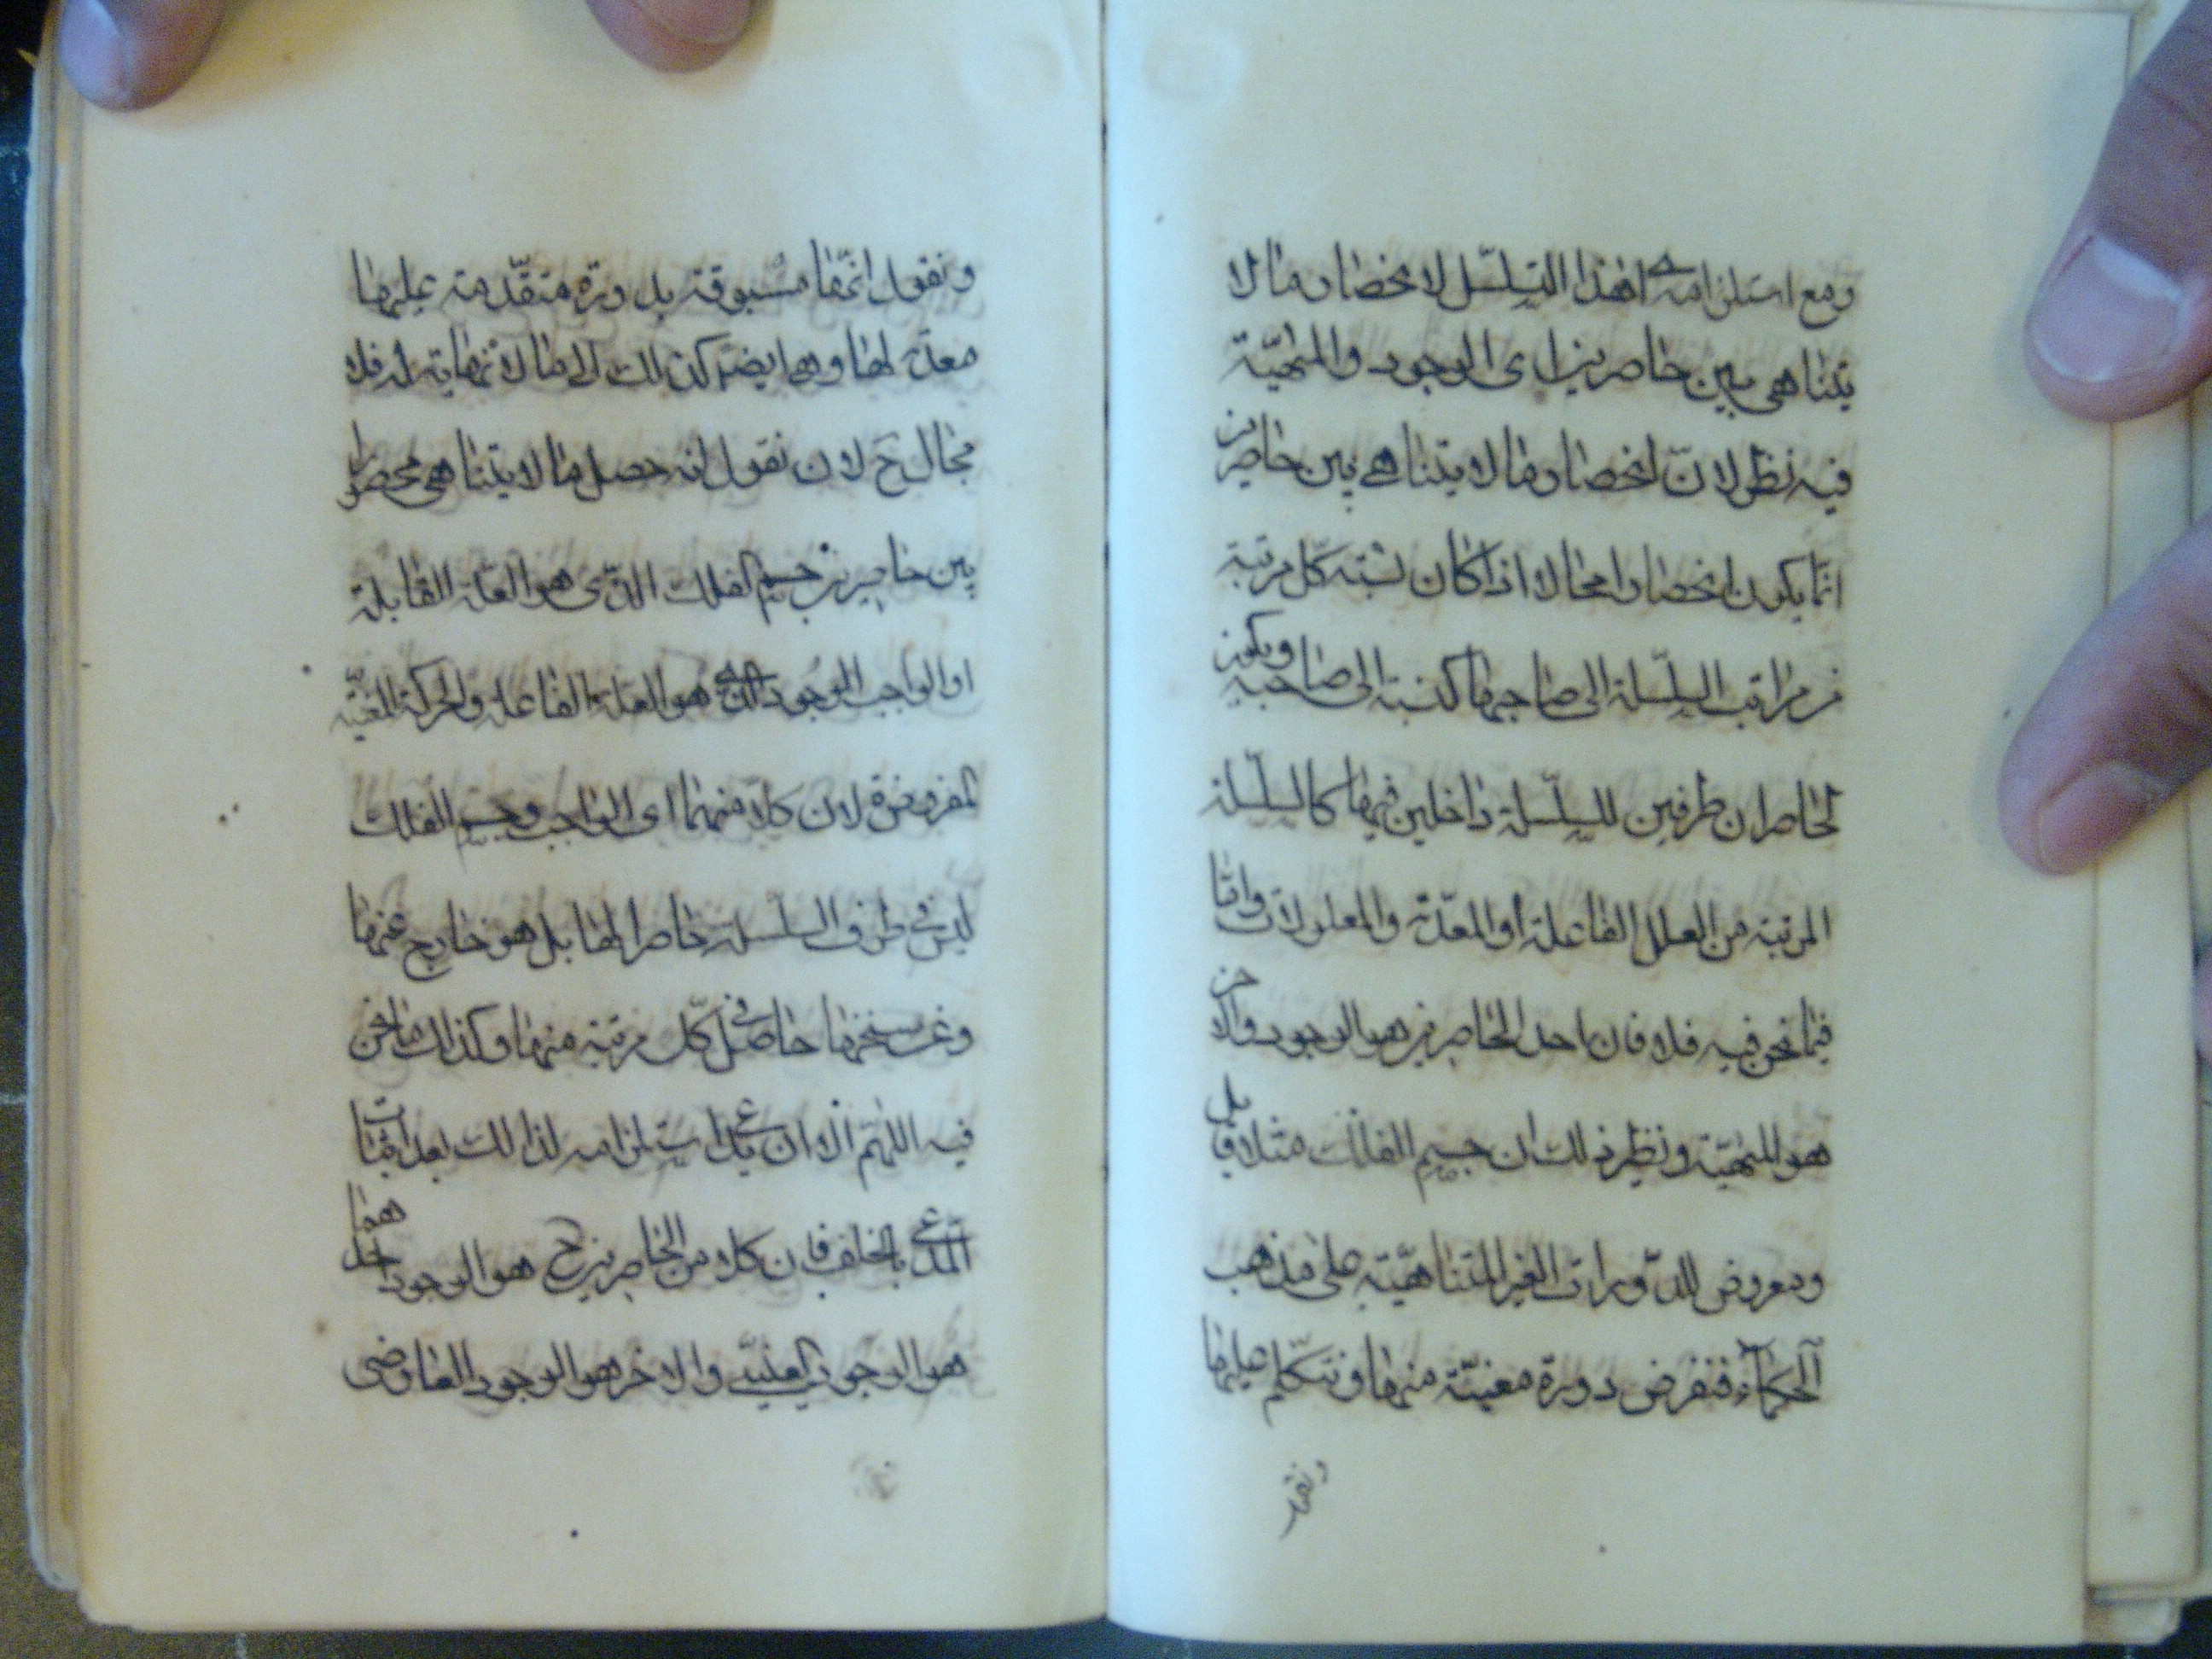 ومع استلزامه لهذا التسلسل لانحصار ما لا
يتناهى بين حاصرين اى الوجود والمهيّة
فيه نظر لانّ انحصار ما لا يتناهى بين حاصرين
انما يكون انحصارا محالا اذا كان نسبة كلّ مرتبة
من مراتب السلسلة الى صاحبها كنسبة الى صاحبه ويكون
الحاصران طرفين للسلسلة داخلين فيها كالسلسلة
المرتبة من العلل الفاعلة او المعدّة والمعلولات وامّا
فيما نحن فيه فلا فان احد الحاصرين هو الوجود والاخر
هو المهيّة ونظير ذلك ان جسم الفلك مثلا قابل
ومعروض للدّورات الغير المتناهيّة على مذهب
الحكماء فنفرض دورة معيّنة منها ونتكلّم عليها
ونقول
ونقول انّها مسبوقة بدورة متقدّمة عليها
معدّة لها وهى ايضا كذلك الى ما لا نهاية له فلا
مجال ح لان نقول انه حصل ما لا يتناهى محصورا
بين حاصرين جسم الفلك الذى هو العلّة القابلة
او الواجب الوجود الذى هو العلة الفاعلة والحركة المعيّنة
المفروضة لان كلا منهما اى الواجب وجسم الفلك
ليس فى طرف السلسلة حاصرا لها بل هو خارج عنها
وعن سنخها حاصل فى كلّ مرتبة منها وكذلك ما نحن
فيه اللهم الا ان يدعى استلزامه لذلك بعد اثبات
المدعى بالخلف فان كلا من الحاصرين ح هو الوجود احدهما
هو الوجود العينى والاخر هو الوجود العارضى